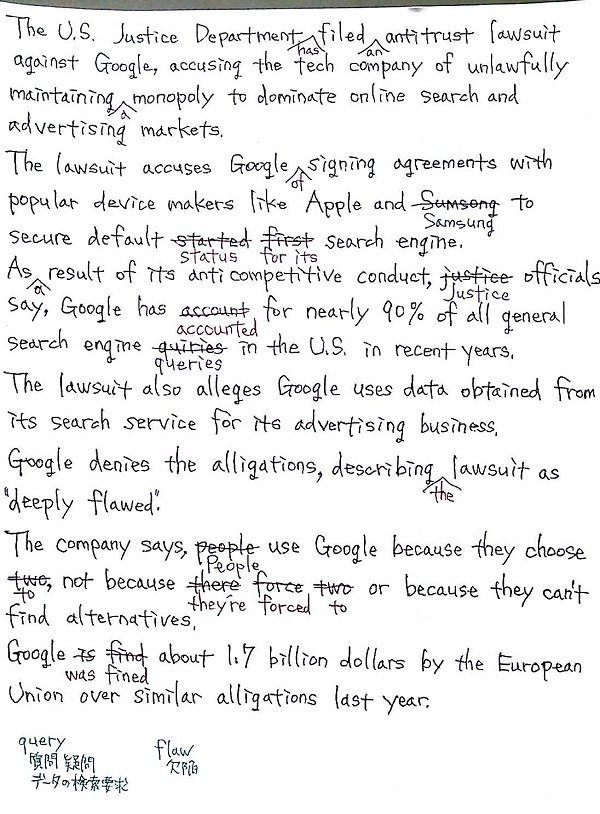 The U.S. Justice Department filed antitrust lawsuit
has an
against Google, accusing the tech company of unlawfully
maintaining monopoly to dominate online search and
a
advertising markets.
The lawsuit accuses Google signing agreements with
of
popular device makers like Apple and Sumsong to
Samsung
secure default started first search engine.
status for its
As result of its anticompetitive conduct, justice officials
a Justice
say, Google has account for nearly 90% of all general
accounted
search engine quiries in the U.S. in recent years.
queries
The lawsuit also alleges Google uses data obtained from
its search service for its advertising business.
Google denies the alligations, describing lawsuit as
the
"deeply flawed".
The company says, people use Google because they choose
People
two, not because there force two or because they can't
to they're forced to
find alternatives.
Google is find about 1.7 billion dollars by the European
was fined
Union over similar alligations last year.
query flaw
質問 疑問 欠陥
データの検索要求